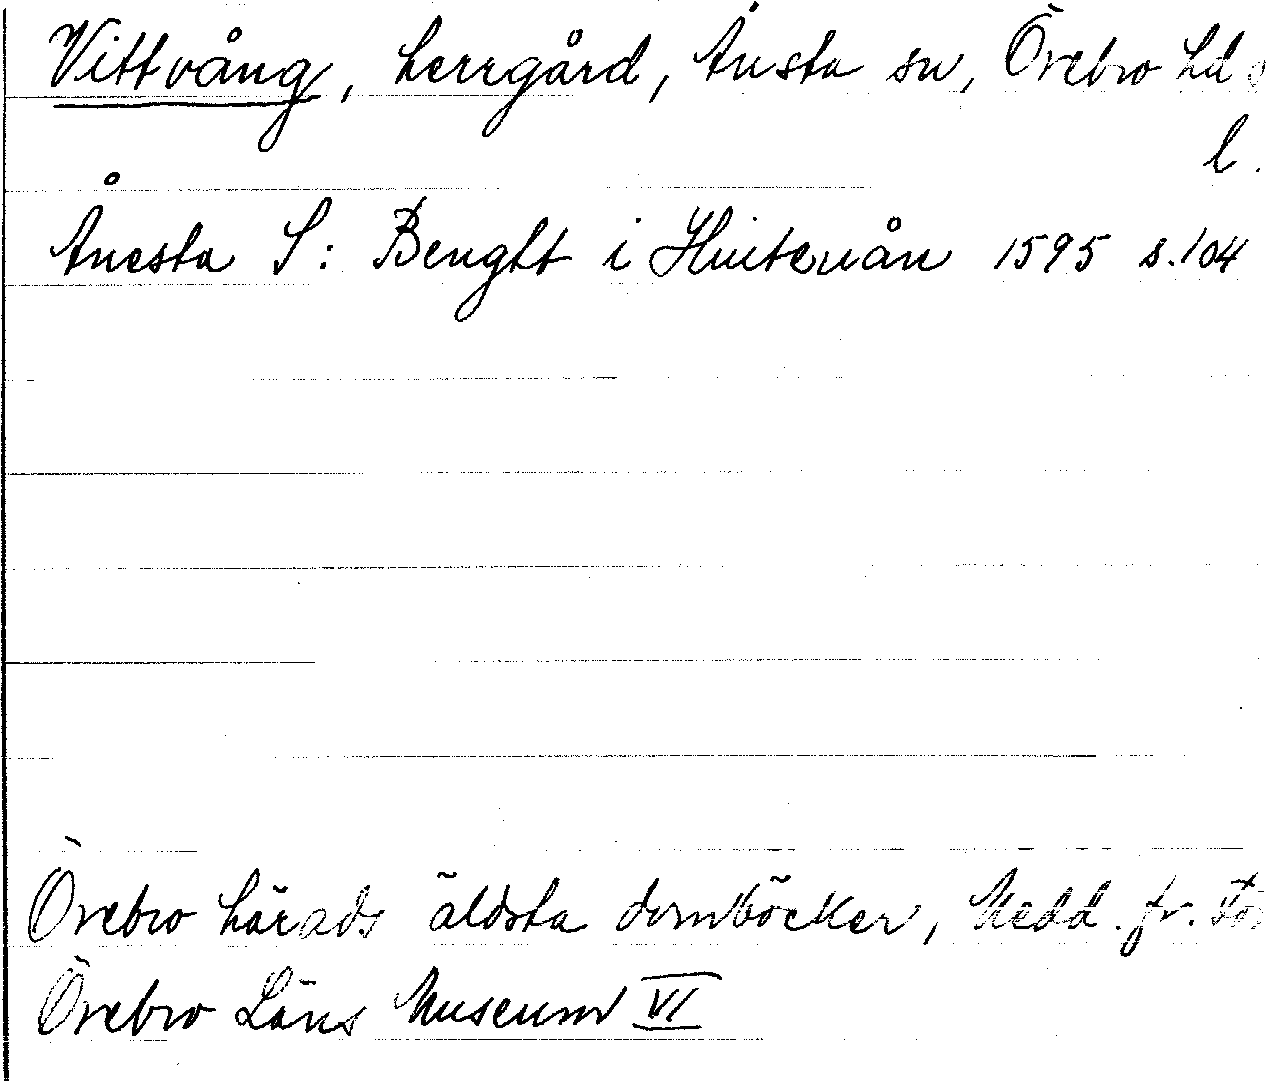 Vittvång, herrgård, Ånsta sn, Örebro hd
l.
Ånesta S: Bengtt i Huitevån 1595 s.104
Örebro härads äldsta domböcker, Medd. fr. Fö
Örebro Läns Museum VI